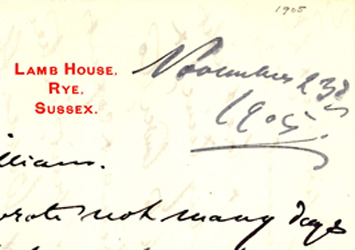 1905
LAMB HOUSE,
RYE,
SUSSEX.
November 23d
1905.
lliams.
wrote not many days